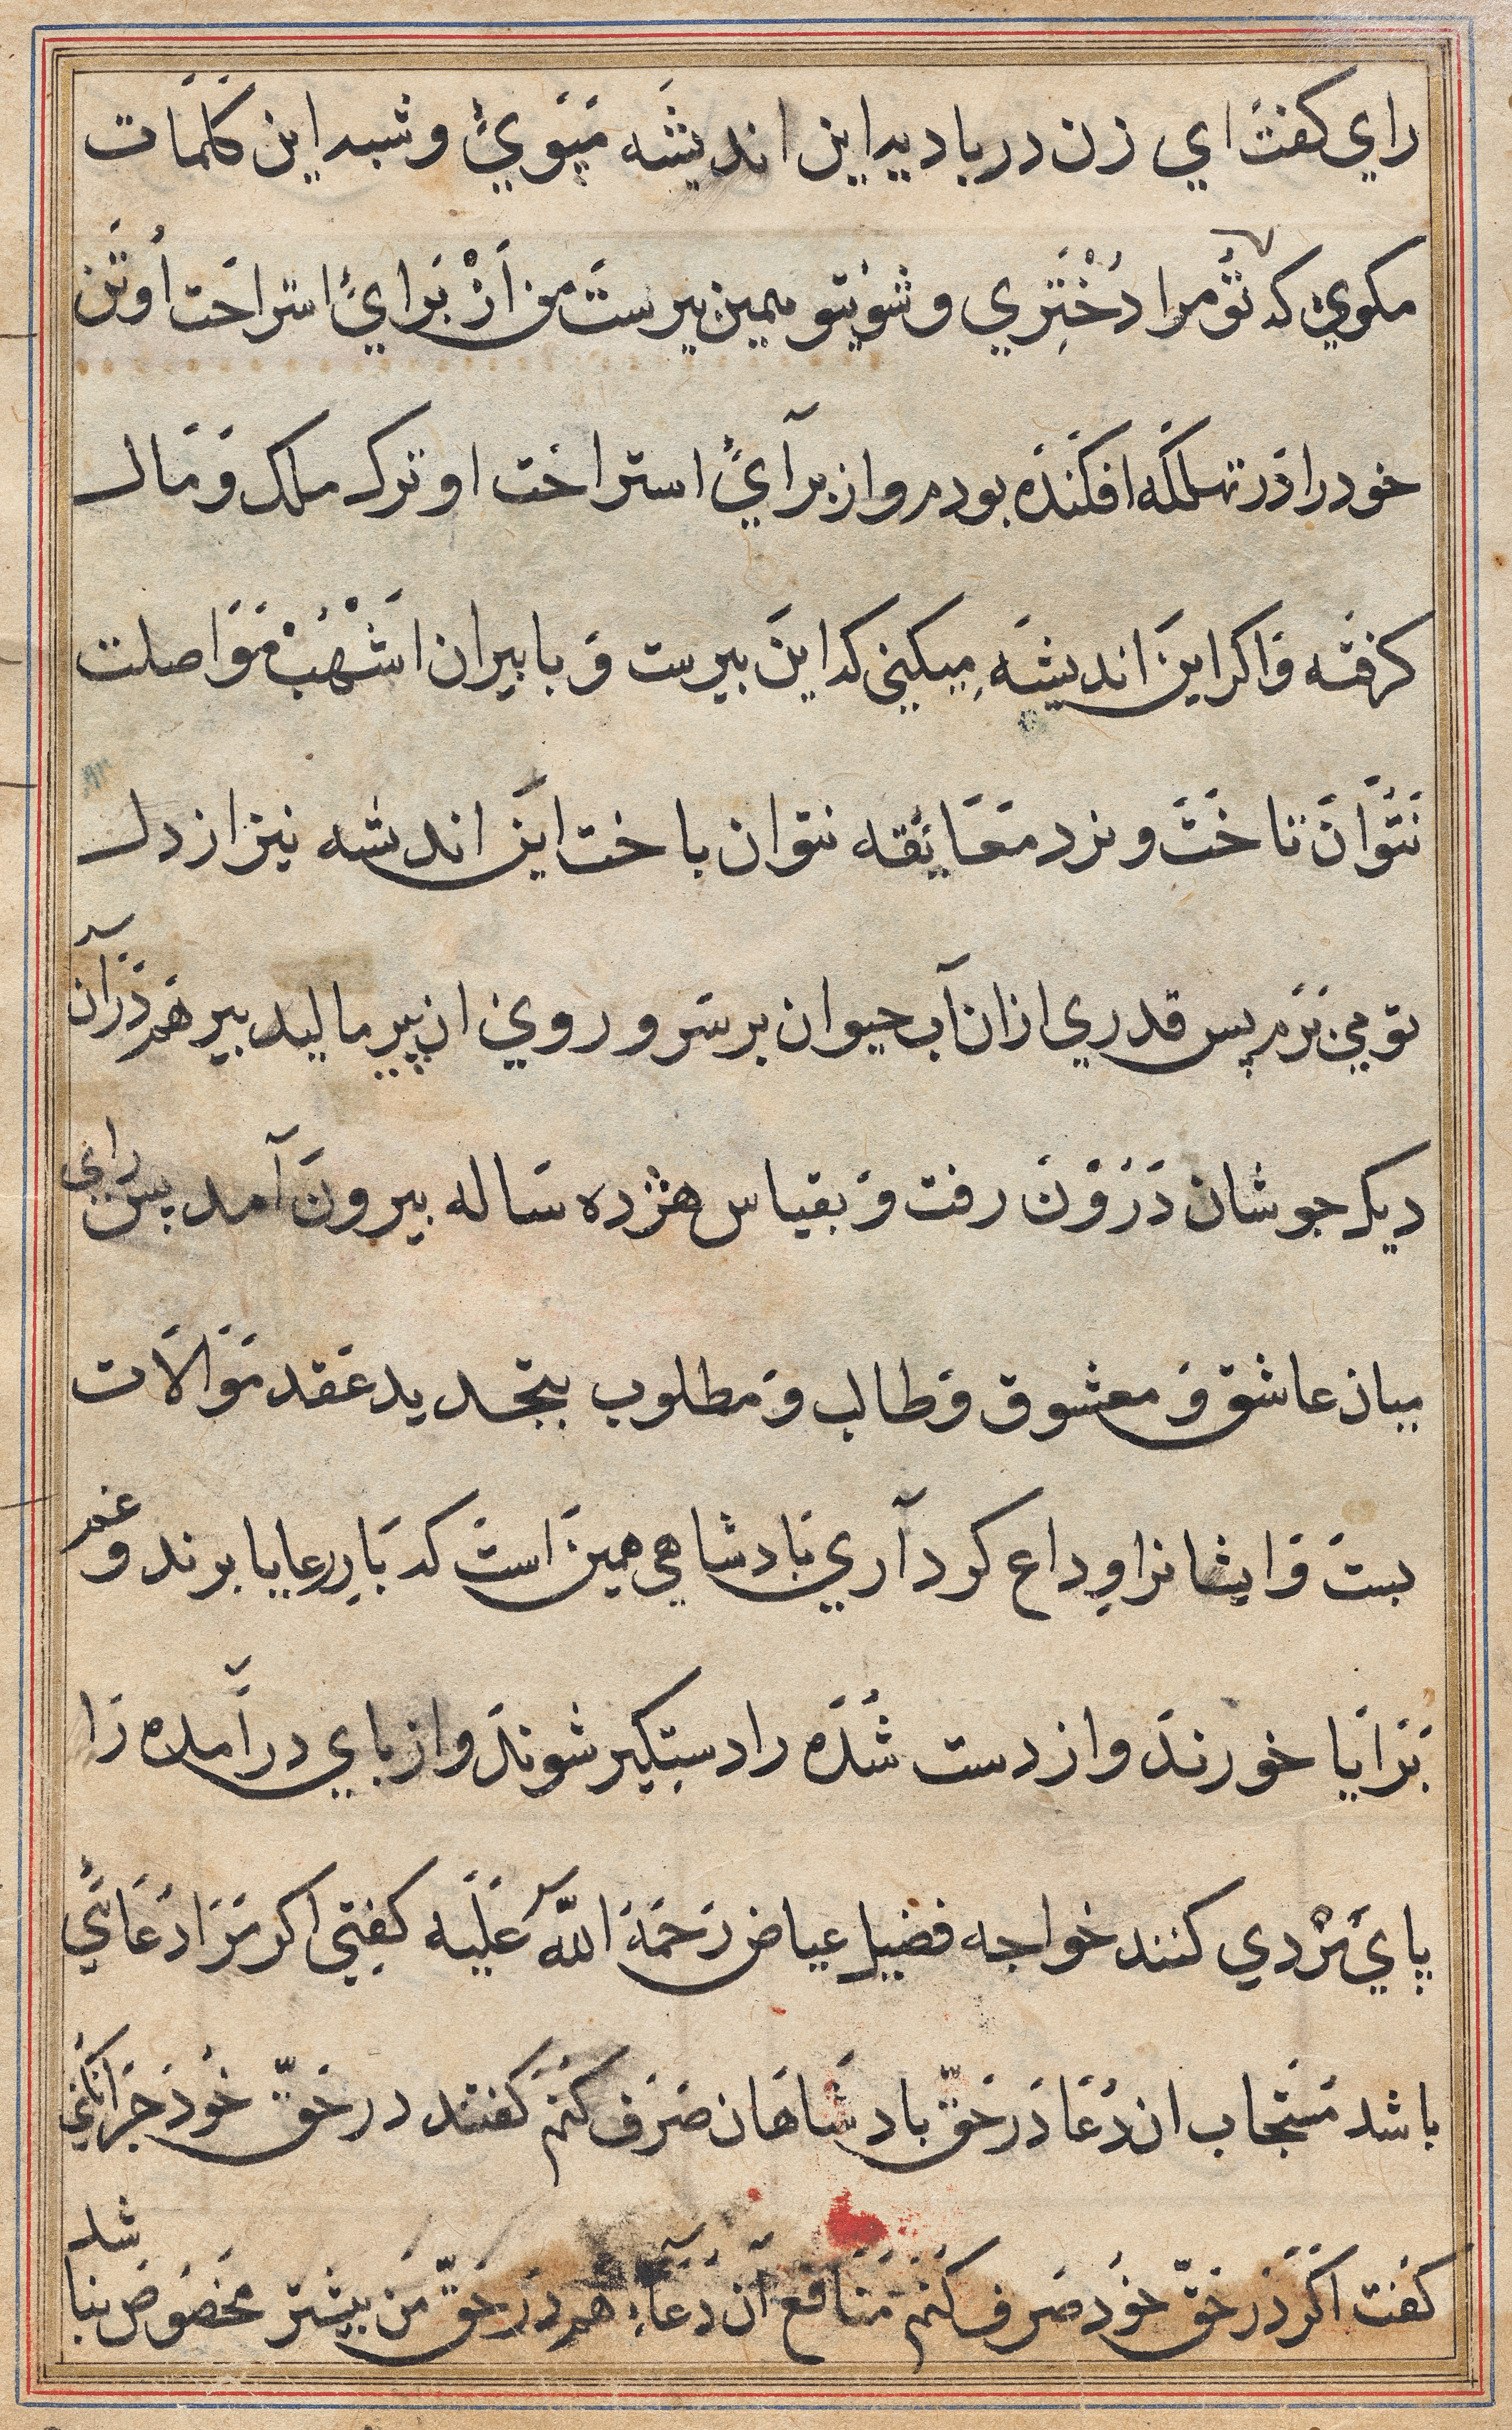 راي كفت اي زن در باديه اين انديشه مپوي و شبه اين كلمات
مكوي كه تو مرا دختري و شوي تو همين پيرست من از براي استراحت او تن
خود را در تهلكه افكنده بودم و از براي استراحت او ترك ملك و مال
كرفته و اكر اين انديشه ميكني كه اين پيرست و با پيران اشهب مواصلت
نتوان تاخت و نرد معانقه نتوان باخت اين انديشه نيز از دل
تو مي برم پس قدري از ان آب حيوان بر سر و روي ان پير ماليد پير هم در آن
ديك جوشان درون رفت و بقياس هژده ساله بيرون آمد پس راي
ميان عاشق و معشوق و طالب و مطلوب بتجديد عقد موالات
بست و ايشانرا وداع كرد آري پادشاهي همين است كه بار رعايا برند و غم
برايا خورند و از دست شده را دستكير شوند و از پاي درآمده را
پاي مردي كنند خواجه فضيل عياض رحمة الله عليه كفتي اكر مرا دعائي
باشد مستجاب ان دعا در حق پادشاهان صرف كنم كفتند در حق خود چرا نكني
كفت اكر در حق خود صرف كنم منافع آن دعا هم در حق من بيشتر مخصوص نباشد